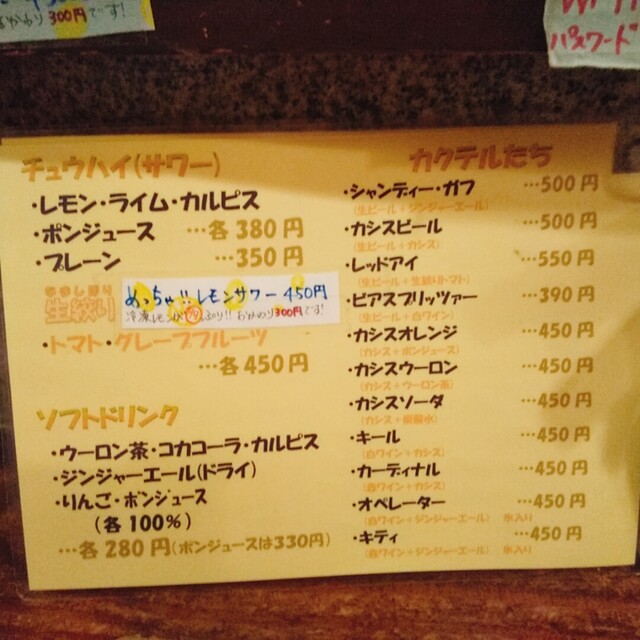 おかわり300円です!
パスワード
チュウハイ(サワー)
・レモン・ライム・カルピス
・ポンジュース …各380円
・プレーン …350円
生絞り
めっちゃ!!レモンサワー 450円
おかわり300円です!
・トマト・グレープフルーツ
…各450円
ソフトドリンク
・ウーロン茶・コカコーラ・カルピス
・ジンジャーエール(ドライ)
・りんご・ポンジュース
(各100%)
…各280円(ポンジュースは330円)
カクテルたち
・シャンディー・ガフ …500円
(生ビール+ジンジャーエール)
・カシスビール …500円
(生ビール+カシス)
・レッドアイ …550円
(生ビール+生絞りトマト)
・ビアスプリッツァー …390円
(生ビール+白ワイン)
・カシスオレンジ …450円
(カシス+ポンジュース)
・カシスウーロン …450円
(カシス+ウーロン茶)
・カシスソーダ …450円
(カシス+炭酸水)
・キール …450円
(白ワイン+カシス)
・カーディナル …450円
(白ワイン+カシス)
・オペレーター …450円
(白ワイン+ジンジャーエール) 氷入り
・キティ …450円
(白ワイン+ジンジャーエール) 氷入り